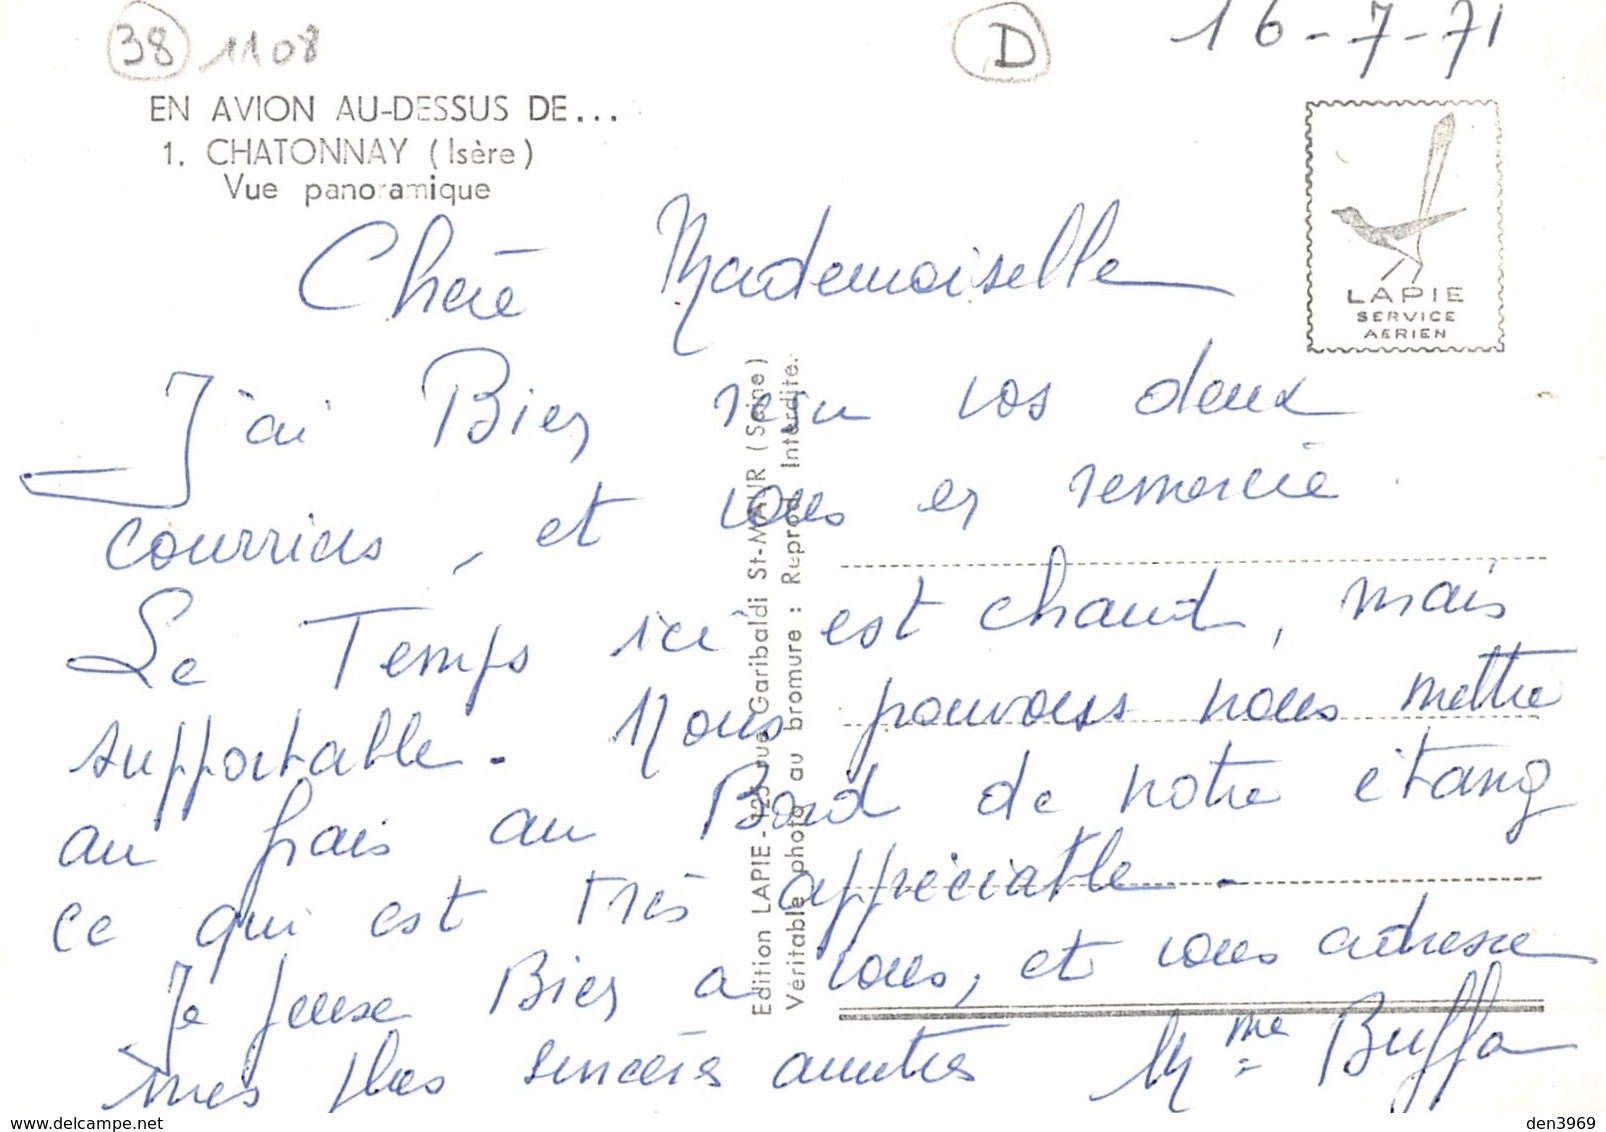 38 1108
D
16-7-71
EN AVION AU-DESSUS DE...
1. CHATONNAY (Isère)
Vue panoramique
LAPIE
SERVICE
AERIEN
Chère Mademoiselle
J'ai Bien reçu vos deux
courriers, et vous en remercie.
Le Temps ici est chaud, mais
supportable. Nous pouvons nous mettre
au frais au Bord de notre étang
ce qui est très appréciable.
Je pense Bien a vous, et vous adresse
mes plus sincères amitiés Mme Buffa
Edition LAPIE - 125 rue Garibaldi St-MAUR (Seine)
Véritable photo au bromure : Reprod. Interdite.
delcampe.net
den3969